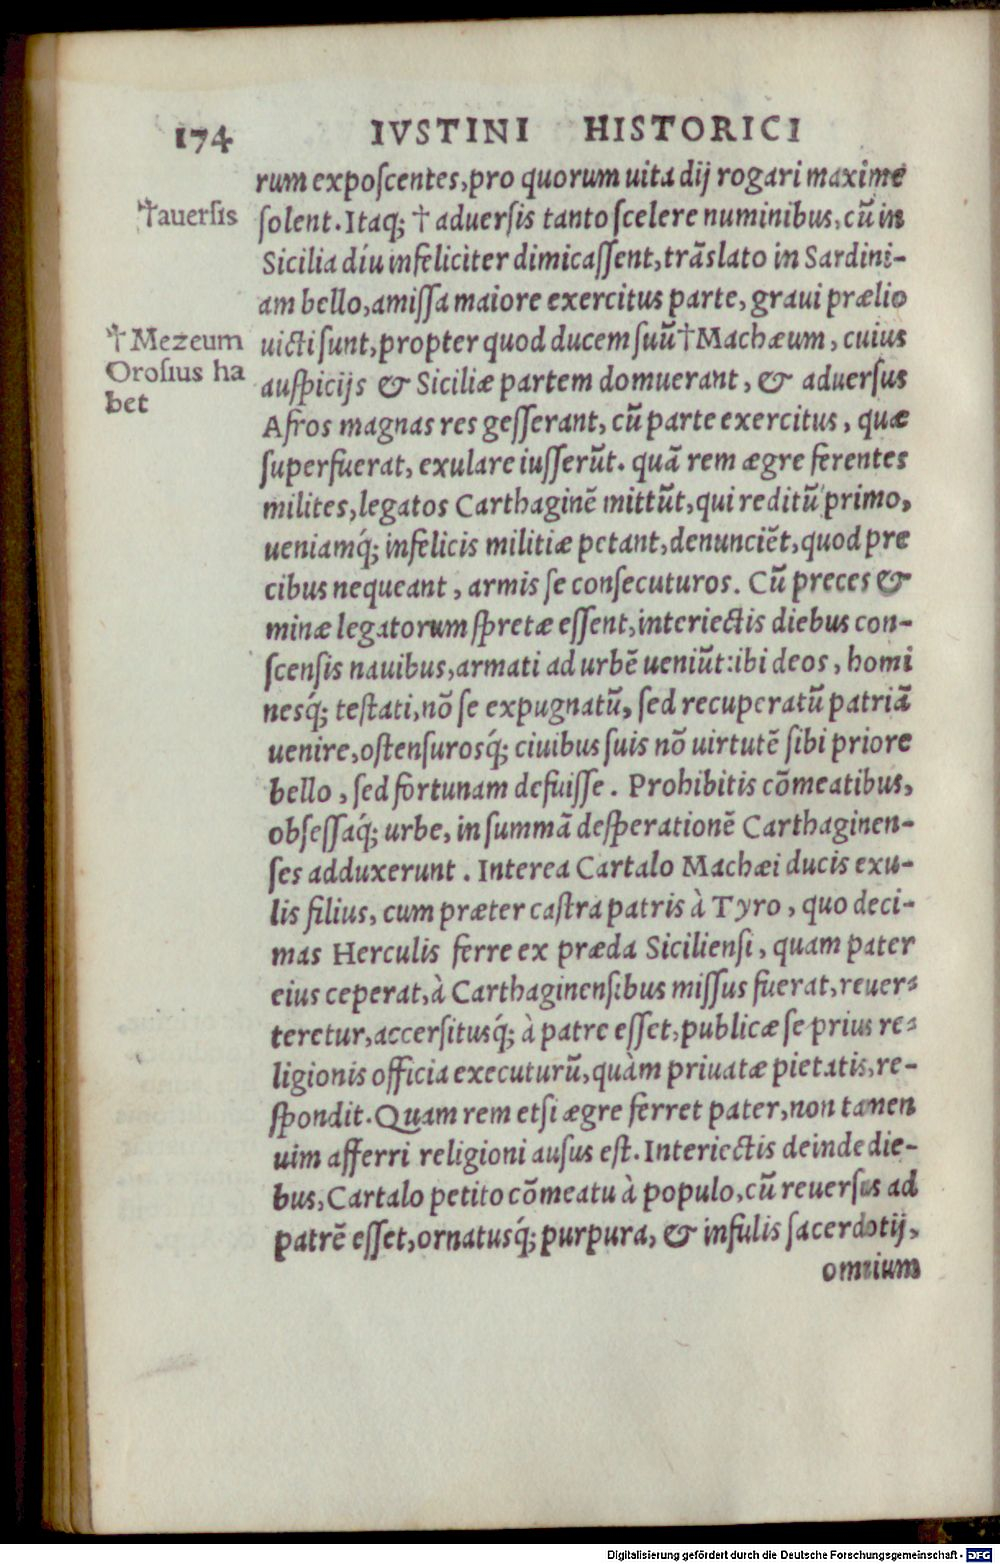 174 IVSTINI HISTORICI
rum exposcentes, pro quorum uita dij rogari maxime
†auersis
solent. Itaq; † aduersis tanto scelere numinibus, cū in
Sicilia diu infeliciter dimicaſſent, trãslato in Sardini-
am bello, amiſſa maiore exercitus parte, graui prælio
† Mezeum
Orosius ha
bet
uicti sunt, propter quod ducem suū † Machæum, cuius
auspicijs & Siciliæ partem domuerant, & aduersus
Afros magnas res geſſerant, cū parte exercitus, quæ
superfuerat, exulare iuſſerūt. quã rem ægre ferentes
milites, legatos Carthaginē mittūt, qui reditū primo,
ueniamq́; infelicis militiæ petant, denunciēt, quod pre
cibus nequeant, armis se consecuturos. Cū preces &
minæ legatorum spretæ eſſent, interiectis diebus con-
scensis nauibus, armati ad urbē ueniūt: ibi deos, homi
nesq́; testati, nõ se expugnatū, sed recuperatū patriã
uenire, ostensurosq́; ciuibus suis nõ uirtutē sibi priore
bello, sed fortunam defuiſſe. Prohibitis cõmeatibus,
obseſſaq́; urbe, in summã desperationē Carthaginen-
ses adduxerunt. Interea Cartalo Machæi ducis exu-
lis filius, cum præter castra patris à Tyro, quo deci-
mas Herculis ferre ex præda Siciliensi, quam pater
eius ceperat, à Carthaginensibus miſſus fuerat, reuer-
teretur, accersitusq́; à patre eſſet, publicæ se prius re-
ligionis officia executurū, quàm priuatæ pietatis, re-
spondit. Quam rem etsi ægre ferret pater, non tamen
uim afferri religioni ausus est. Interiectis deinde die-
bus, Cartalo petito cõmeatu à populo, cū reuersus ad
patrē eſſet, ornatusq́; purpura, & infulis sacerdotij,
omnium
Digitalisierung gefördert durch die Deutsche Forschungsgemeinschaft - DFG